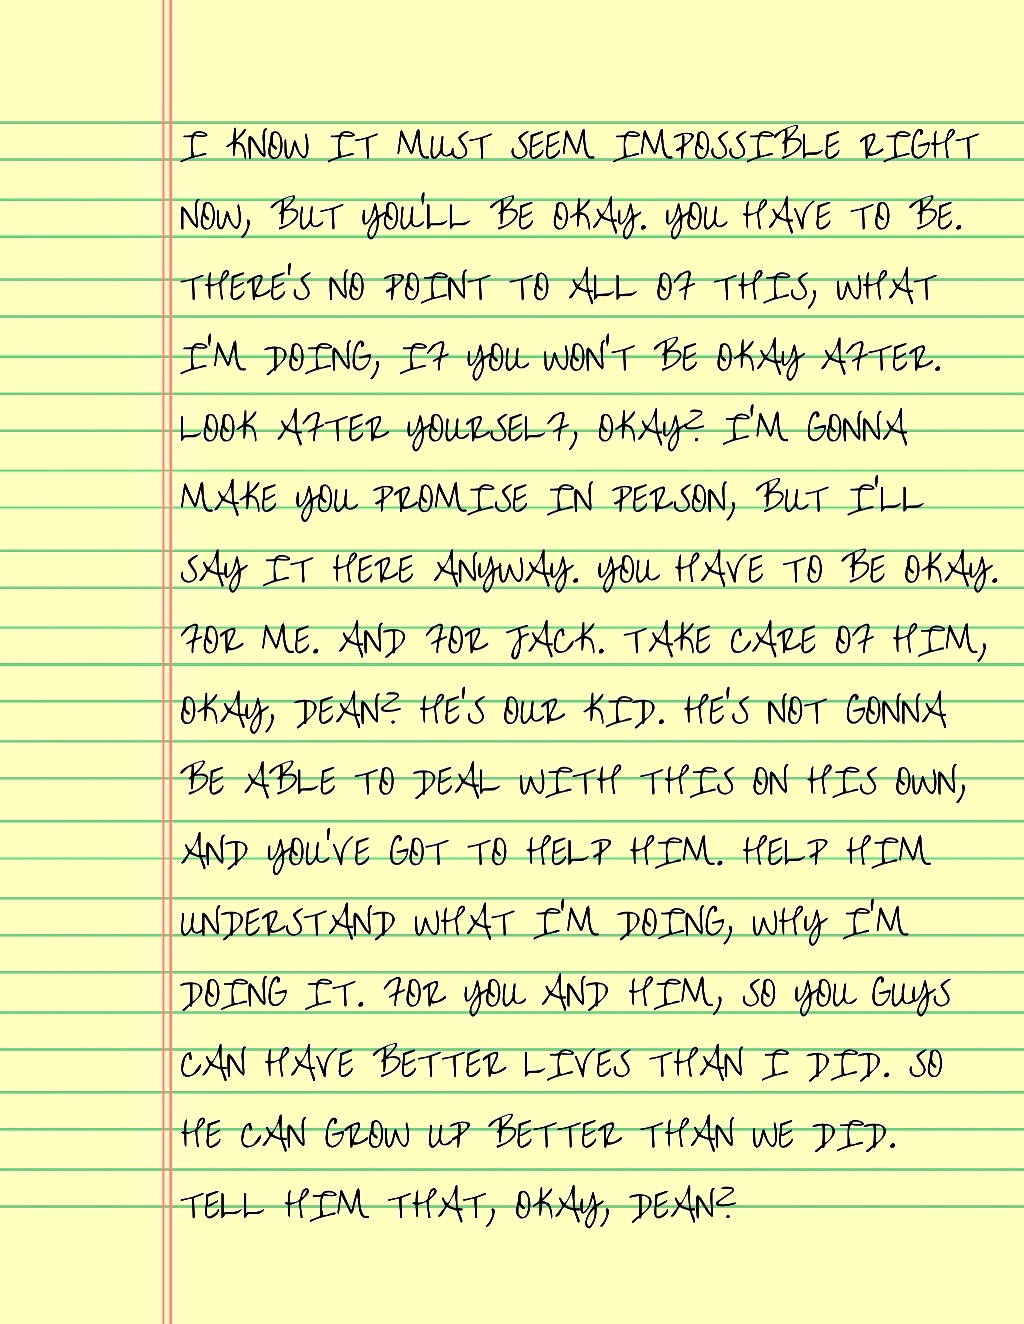 I KNOW IT MUST SEEM IMPOSSIBLE RIGHT
NOW, BUT YOU'LL BE OKAY. YOU HAVE TO BE.
THERE'S NO POINT TO ALL OF THIS, WHAT
I'M DOING, IF YOU WON'T BE OKAY AFTER.
LOOK AFTER YOURSELF, OKAY? I'M GONNA
MAKE YOU PROMISE IN PERSON, BUT I'LL
SAY IT HERE ANYWAY. YOU HAVE TO BE OKAY.
FOR ME. AND FOR JACK. TAKE CARE OF HIM,
OKAY, DEAN? HE'S OUR KID. HE'S NOT GONNA
BE ABLE TO DEAL WITH THIS ON HIS OWN,
AND YOU'VE GOT TO HELP HIM. HELP HIM
UNDERSTAND WHAT I'M DOING, WHY I'M
DOING IT. FOR YOU AND HIM, SO YOU GUYS
CAN HAVE BETTER LIVES THAN I DID. SO
HE CAN GROW UP BETTER THAN WE DID.
TELL HIM THAT, OKAY, DEAN?